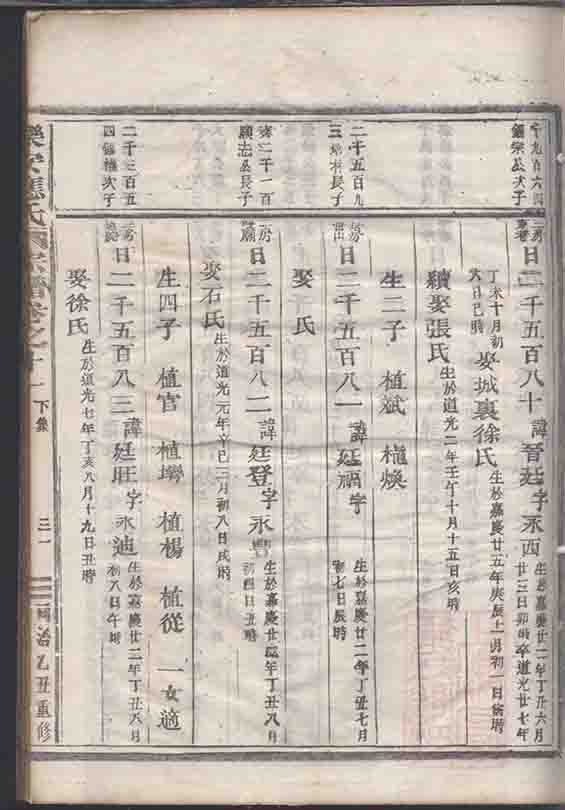 千九百六四
宗公次子
三房
日二千五百八十 諱晉廷字永西 生於嘉慶廿二年丁丑六月
廿三日卯時卒道光廿七年
丁未十月初
六日巳時
娶城裏徐氏 生於嘉慶廿五年庚辰十一月初一日寅時
續娶張氏 生於道光二年壬午十月十五日亥時
生二子 植斌 植煥
二千五百九
三 林長子
房
日二千五百八一 諱廷 字 生於嘉慶廿二年丁丑七月
初七日辰時
娶 氏
二千一百
志公長子
房
日二千五百八二 諱廷登字永豐 生於嘉慶廿二年丁丑八月
初四日丑時
娶石氏 生於道光元年辛巳三月初八日戌時
生四子 植官 植 植楊 植從 一女適
二千三百五
四 權次子
房
日二千五百八三 諱廷旺字永迪 生於嘉慶廿二年丁丑八月
初八日午時
娶徐氏 生於道光七年丁亥八月十九日丑時
樂安應氏 宗譜卷之十一 下集 三一 同治乙丑重修